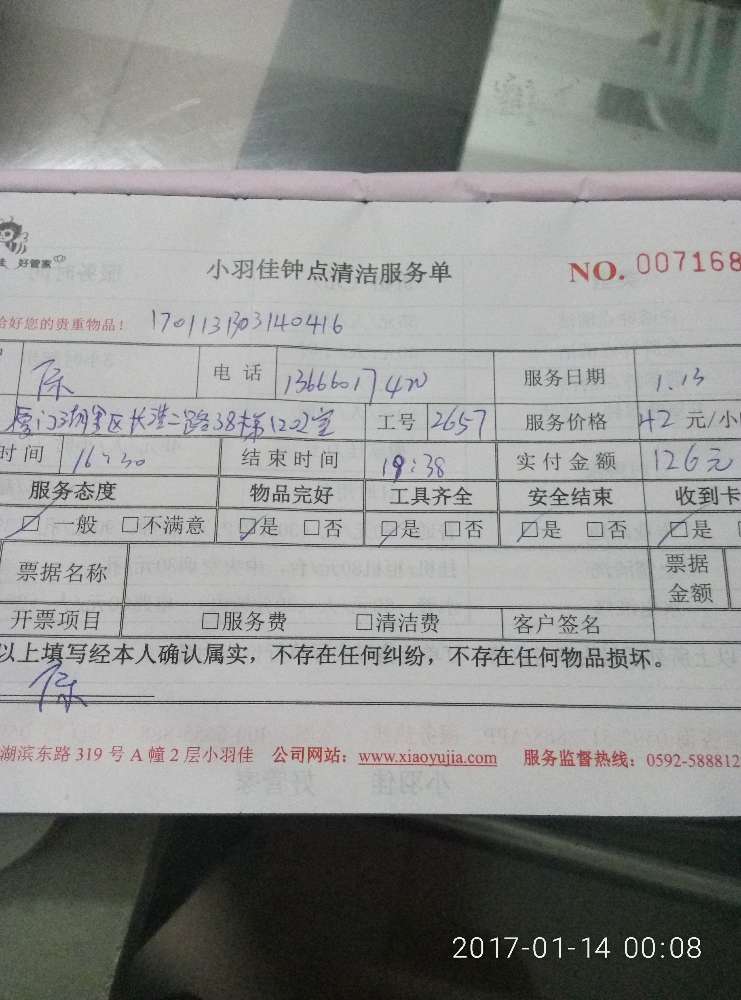 好管家
小羽佳钟点清洁服务单
NO. 007168
好您的贵重物品! 170113303140416
电话 服务日期 1.13
厦门湖里区长浩二路38栋1202室 工号 2657 服务价格 42 元/小
时间 16:30 结束时间 19:38 实付金额 126元
服务态度 物品完好 工具齐全 安全结束 收到卡
□一般 □不满意 □是 □否 □是 □否 □是 □否 □是
票据名称 票据金额
开票项目 □服务费 □清洁费 客户签名
以上填写经本人确认属实，不存在任何纠纷，不存在任何物品损坏。
湖滨东路 319 号 A 幢 2 层小羽佳 公司网站：www.xiaoyujia.com 服务监督热线：0592-588812
2017-01-14 00:08